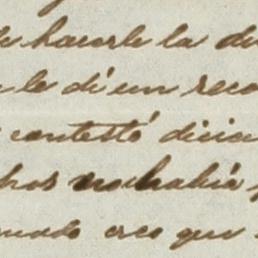 de hacerle la de
le dí un reco
contestó dicie
hos no había
uado creo que